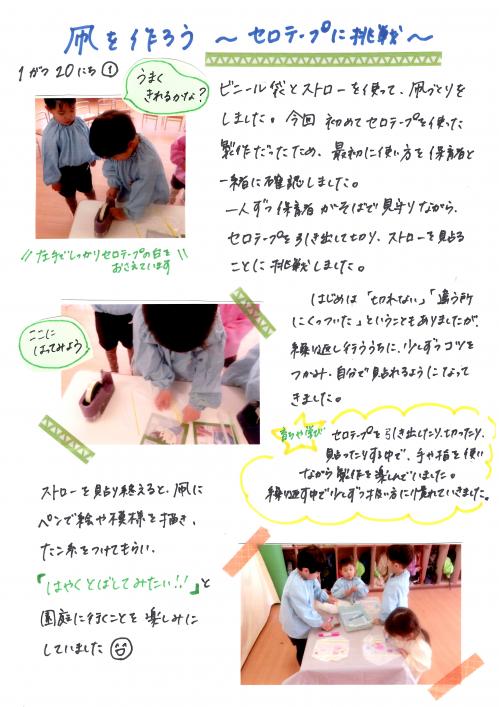 凧を作ろう 〜セロテープに挑戦〜
1がつ20にち①
うまく
きれるかな?
ビニール袋とストローを使って、凧づくりを
しました。今回 初めてセロテープを使った
製作だったため、最初に使い方を保育者と
一緒に確認しました。
一人ずつ保育者がそばで見守りながら、
セロテープを引き出して切り、ストローを貼る
ことに挑戦しました。
左手でしっかりセロテープの台を
おさえています
はじめは「切れない」「違う所
にくっついた」ということもありましたが、
繰り返し行ううちに、少しずつコツを
つかみ、自分で貼れるようになって
きました。
ここに
はってみよう
育ちや学び
セロテープを引き出したり、切ったり、
貼ったりする中で、手や指を使い
ながら製作を楽しんでいました。
繰り返す中で少しずつ扱い方に慣れていきました。
ストローを貼り終えると、凧に
ペンで絵や模様を描き、
たこ糸をつけてもらい、
「はやくとばしてみたい!!」と
園庭に行くことを楽しみに
していました